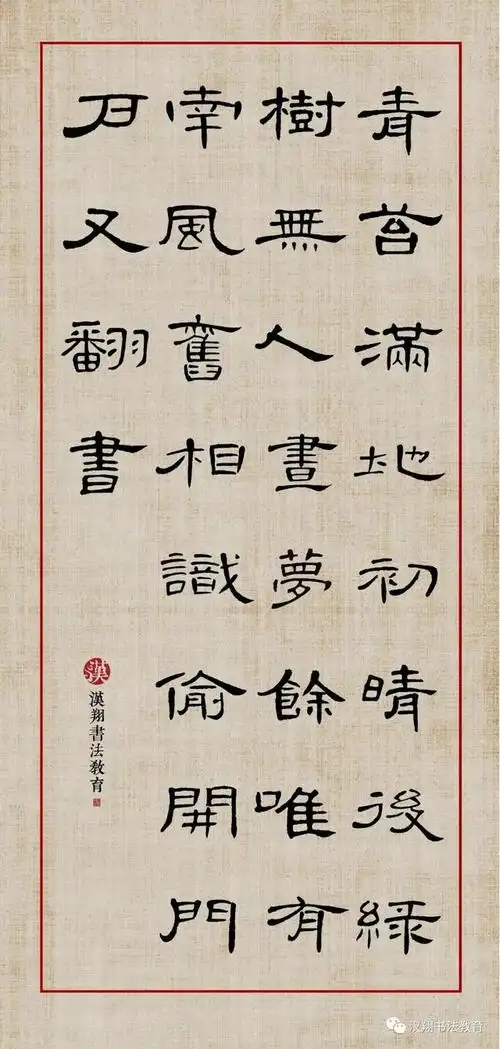 青苔滿地初晴後綠
樹無人晝夢餘唯有
南風舊相識偷開門
戶又翻書
漢
漢翔書法教育
汉翔书法教育